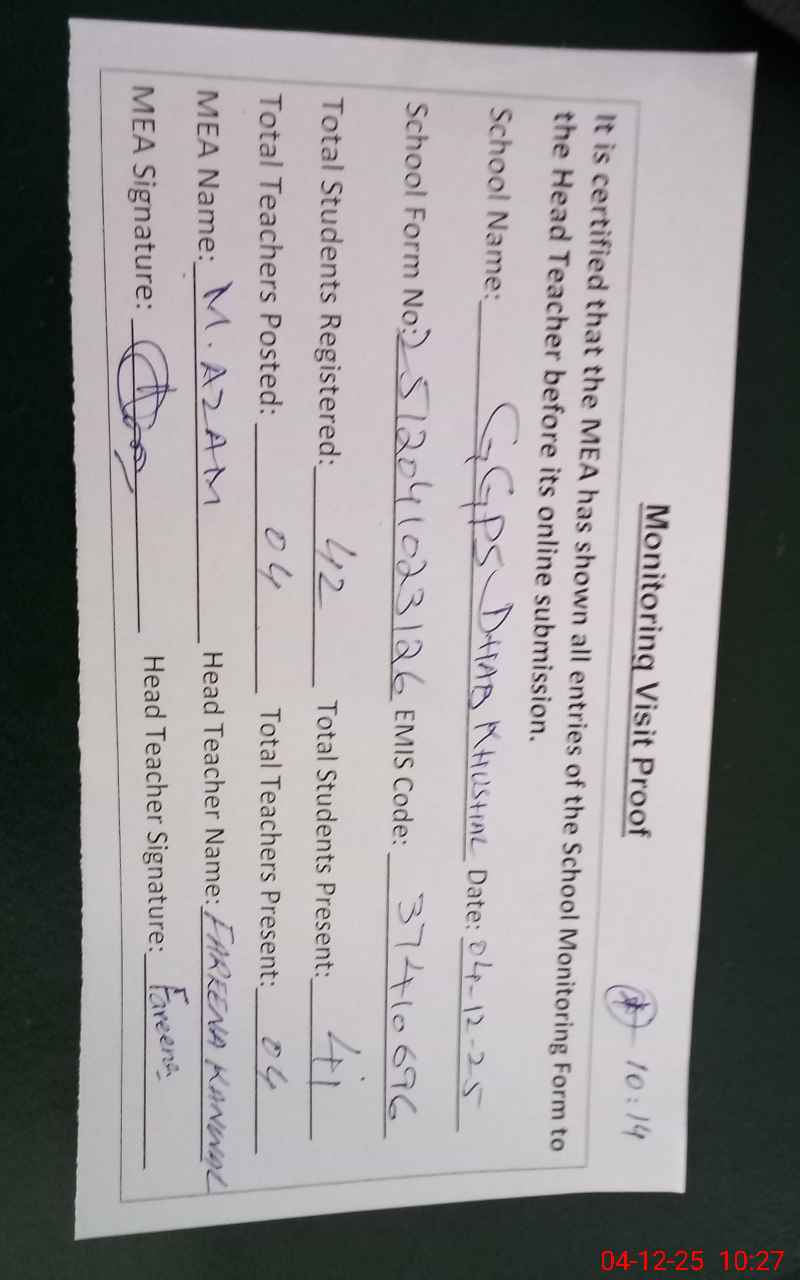 10:14
Monitoring Visit Proof
It is certified that the MEA has shown all entries of the School Monitoring Form to
the Head Teacher before its online submission.
School Name: GGPS DHAB KHUSHAL Date: 04-12-25
School Form No: 2512041023126 EMIS Code: 37410696
Total Students Registered: 42 Total Students Present: 41
Total Teachers Posted: 04 Total Teachers Present: 04
MEA Name: M. AZAM Head Teacher Name: FAREENA KANWAL
MEA Signature: Head Teacher Signature: Fareena
04-12-25 10:27